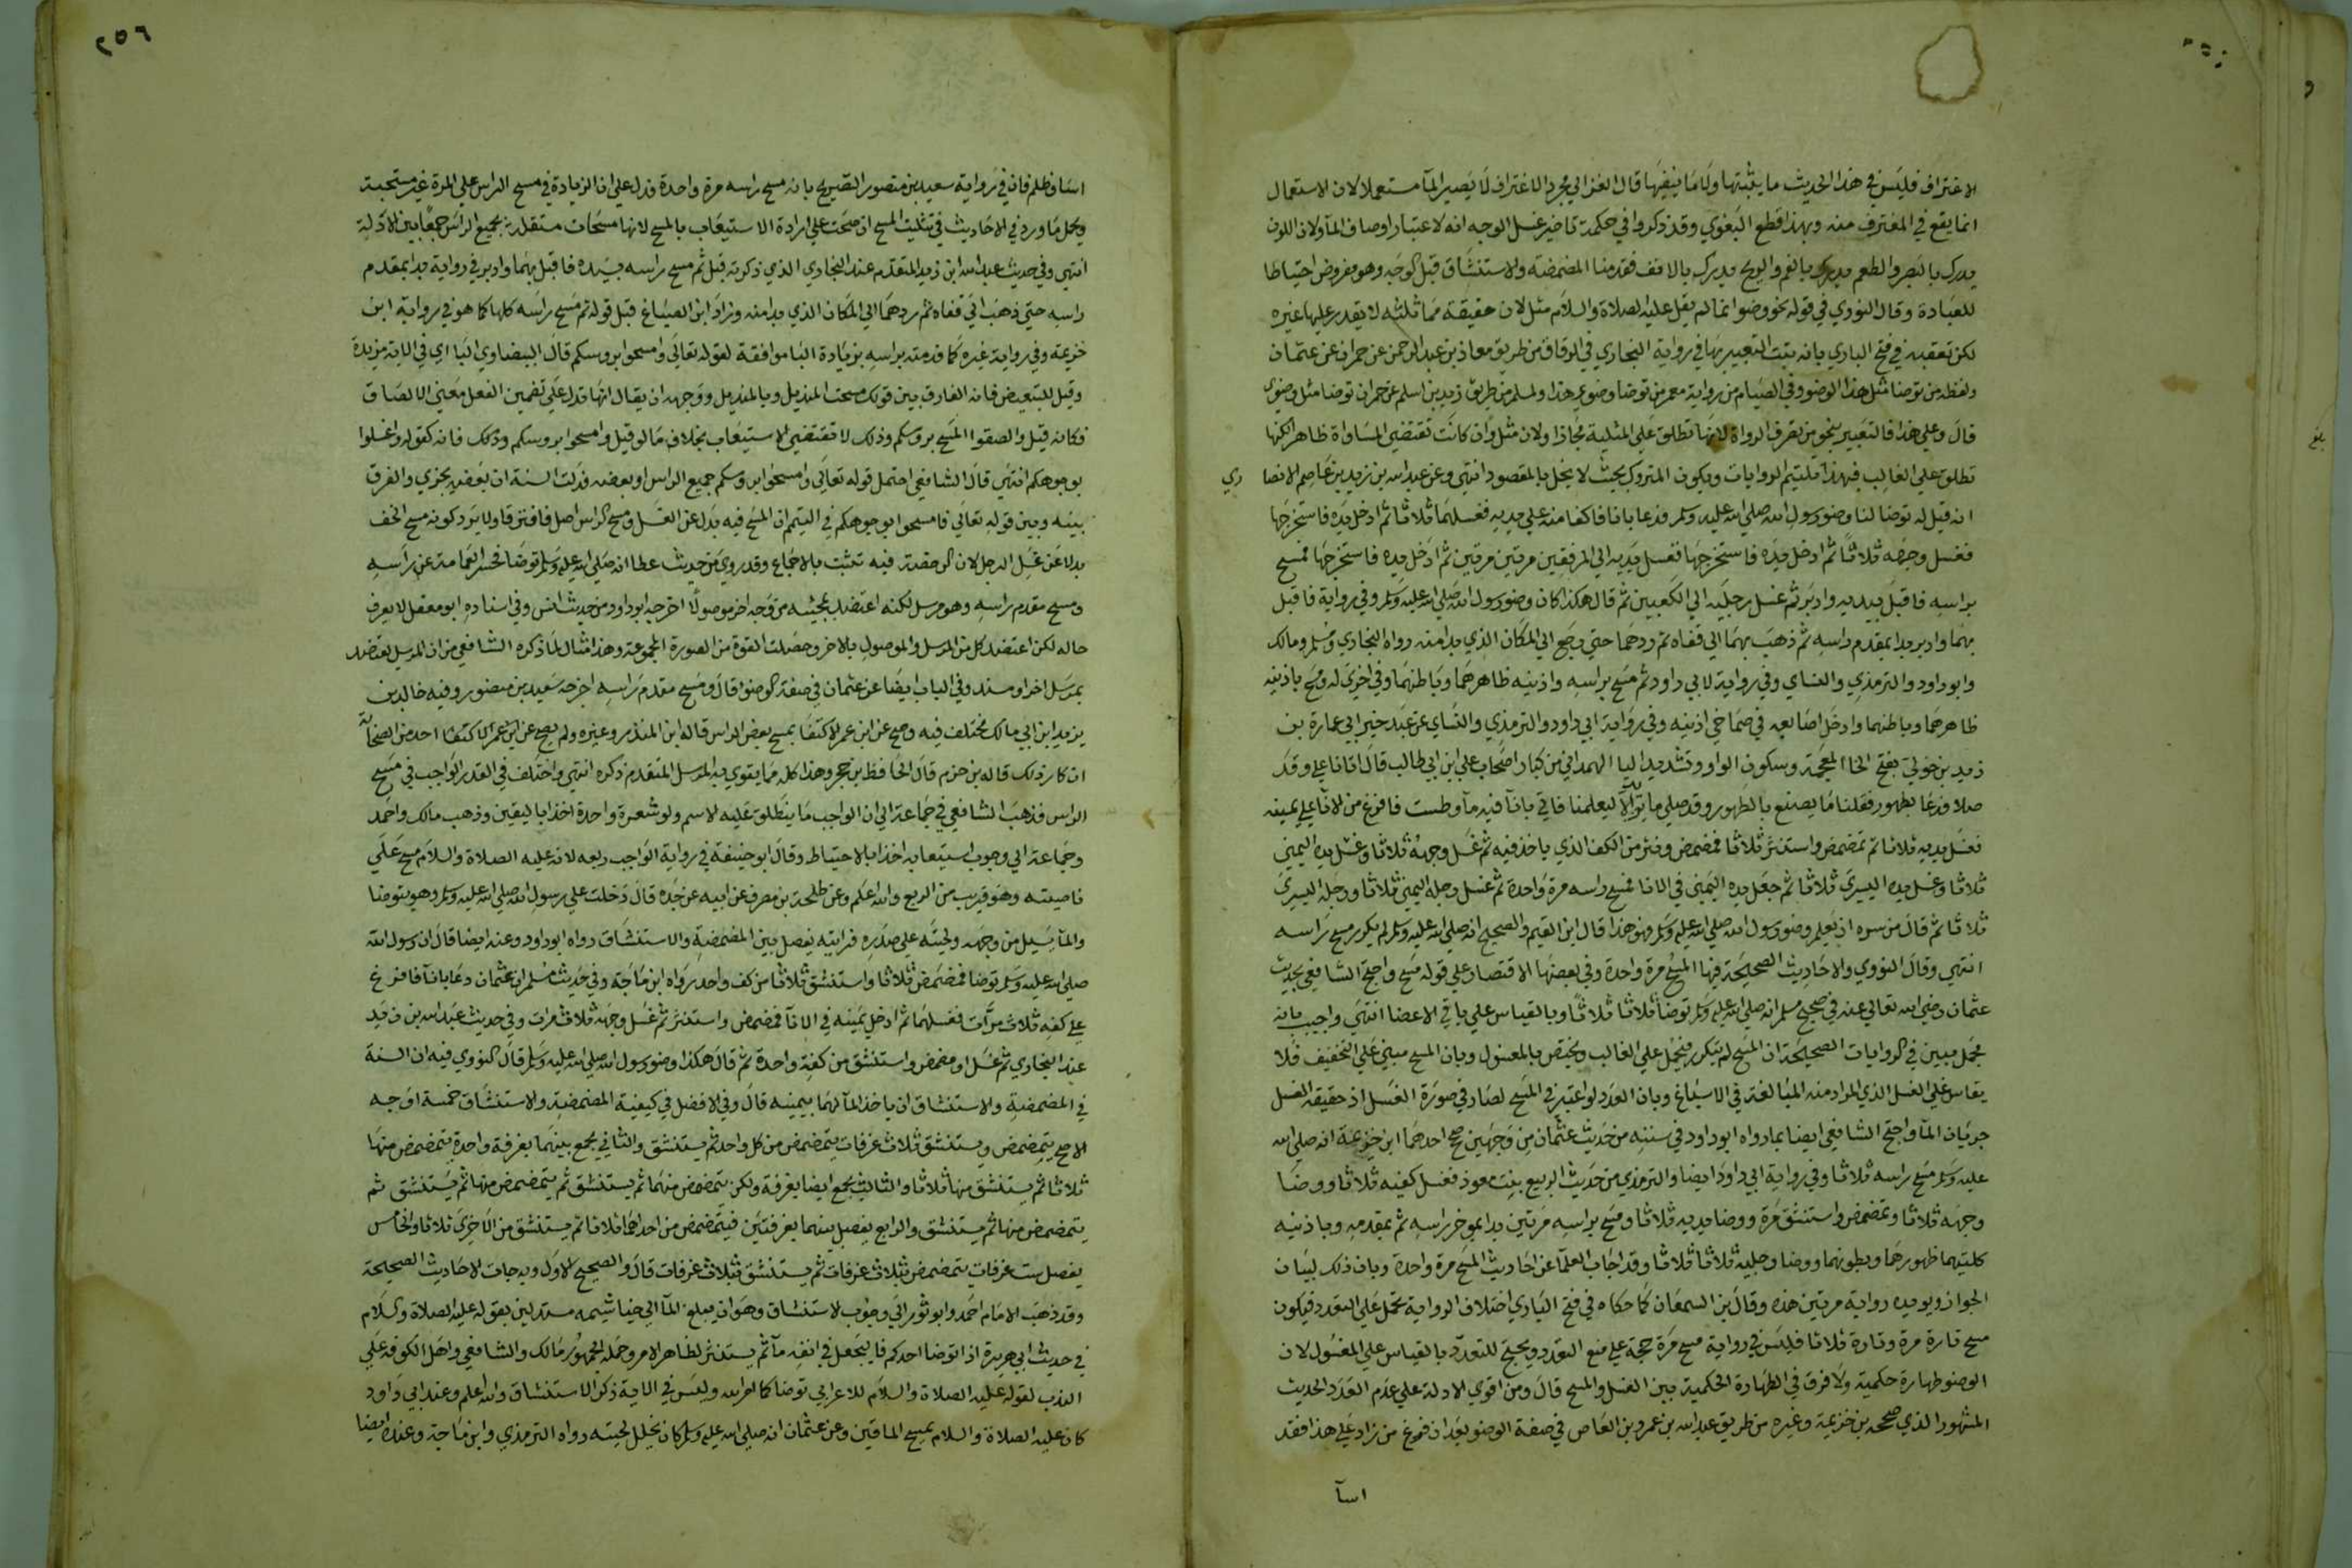 الاغتراف فليس في هذا الحديث ما يثبتها ولا ما ينفيها قال الغزالي مجرد الاغتراف لا يصير المآ مستعملا لان الاستعمال
انما يقع في المغترف منه وبهذا قطع البغوي وقد ذكروا في حكمة تاخير غسل الوجه انه لاعتبار اوصاف المآ ولان اللون
يدرك بالبصر والطعم يدرك بالفم والريح يدرك بالانف فقدمنا المضمضة والاستنشاق قبل الوجه وهو مفروض احتياطا
للعبادة وقال النووي في قوله نحو وضوا انما لم يقل عليه الصلاة والسلام مثل لان حقيقة مماثلته لا يقدر عليها غيره
لكن تعقبه في فتح الباري بانه يثبت التعبير بها في رواية البخاري في الرقاق من طريق معاذ بن عبد الرحمن عن حمران عن عثمان
ولفظه من توضا مثل هذا الوضو وفي الصيام من رواية معمر من توضا وضوي هذا ولمسلم من طريق زيد بن اسلم عن حمران توضا مثل وضوي
قال وعلي هذا فالتعبير بنحو من تصرف الرواة لانها تطلق علي المثلية مجازا ولان مثل وان كانت تقتضي المساواة ظاهرا لكنها
تطلق علي الغالب فبهذا تلتيم الروايات ويكون المتروك بحيث لا يخل بالمقصود انتهي وعن عبد الله بن زيد بن عاصم الانصا ري
انه قيل له توضا لنا وضو رسول الله صلي الله عليه وسلم فدعا بانا فاكفا منه علي يديه فغسلهما ثلاثا ثم ادخل يده فاستخرجها
فغسل وجهه ثلاثا ثم ادخل يده فاستخرجها فغسل يديه الي المرفقين مرتين مرتين ثم ادخل يده فاستخرجها فمسح
براسه فاقبل بيديه وادبر ثم غسل رجليه الي الكعبين ثم قال هكذا كان وضو رسول الله صلي الله عليه وسلم وفي رواية فاقبل
بهما وادبر بدا بمقدم راسه ثم ذهب بهما الي قفاه ثم ردهما حتي رجع الي المكان الذي بدا منه رواه البخاري ومسلم ومالك
وابو داود والترمذي والنساي وفي رواية لابي داود ثم مسح براسه واذنيه ظاهرهما وباطنهما وفي اخري له ومسح باذنيه
ظاهرهما وباطنهما وادخل اصابعه في صماخي اذنيه وفي رواية ابي داود والترمذي والنساي عن عبد خير ابي عمارة بن
زيد بن خولي بفتح الخا المعجمة وسكون الواو وتشديد اليا الهمداني من كبار اصحاب علي ابن ابي طالب قال اتانا علي وقد
صلا فدعا بطهور فقلنا ما يصنع بالطهور وقد صلي ما يريد الا ليعلمنا فاتي بانآ فيه مآ وطست فافرغ من الانآ علي يمينه
فغسل يديه ثلاثا ثم تمضمض واستنثر ثلاثا فمضمض ونثر من الكف الذي ياخذ فيه ثم غسل وجهه ثلاثا وغسل يده اليمني
ثلاثا وغسل يده اليسري ثلاثا ثم جعل يده اليمني في الانا فمسح راسه مرة واحدة ثم غسل رجله اليمني ثلاثا ورجله اليسري
ثلاثا ثم قال من سره ان يعلم وضو رسول الله صلي الله عليه وسلم فهو هذا قال ابن القيم والصحيح انه صلي الله عليه وسلم لم يكرر مسح راسه
انتهي وقال النووي والاحاديث الصحيحة فيها المسح مرة واحدة وفي بعضها الاقتصار علي قوله مسح واحتج الشافعي بحديث
عثمان رضي الله تعالي عنه في صحيح مسلم انه صلي الله عليه وسلم توضا ثلاثا ثلاثا وبالقياس علي باقي الاعضا انتهي واجيب بانه
مجمل مبين في الروايات الصحيحة ان المسح لم يتكرر فيحمل علي الغالب ويختص بالمغسول وبان المسح مبني علي التخفيف فلا
يقاس علي الغسل الذي المراد منه المبالغة في الاسباغ وبان العدد لو اعتبر في المسح لصار في صورة الغسل اذ حقيقة الغسل
جريان المآ واحتج الشافعي ايضا بما رواه ابو داود في سننه من حديث عثمان من وجهين صحح احدهما ابن خزيمة انه صلي الله
عليه وسلم مسح راسه ثلاثا وفي رواية ابي داود ايضا والترمذي من حديث الربيع بنت معوذ فغسل كفيه ثلاثا ووضا
وجهه ثلاثا وتمضمض واستنشق مرة ووضا يديه ثلاثا ومسح براسه مرتين بدا بموخر راسه ثم بمقدمه وباذنيه
كلتيهما ظهورهما وبطونهما ووضا رجليه ثلاثا ثلاثا وقد اجاب العلمآ عن احاديث المسح مرة واحدة وبان ذلك لبيان
الجواز ويويده رواية مرتين هذه وقال بن السمعان كما حكاه في فتح الباري اختلاف الرواية تحمل علي التعدد فيكون
مسح تارة مرة وتارة ثلاثا فليس في رواية مسح مرة حجة علي منع التعدد ويحتج للتعدد بالقياس علي المغسول لان
الوضو طهارة حكمية ولا فرق في الطهارة الحكمية بين الغسل والمسح قال ومن اقوي الادلة علي عدم العدد الحديث
المشهور الذي صححه بن خزيمة وغيره من طريق عبد الله بن عمرو بن العاص في صفة الوضو بعد ان فرغ من زاد علي هذا فقد
اسآ
٢٥٦
اسا وظلم فان في رواية سعيد بن منصور التصريح بانه مسح راسه مرة واحدة فدل علي ان الزيادة في مسح الراس علي المرة غير مستحبة
ويحمل ما ورد في الاحاديث في تثليث المسح ان صحت علي ارادة الاستيعاب بالمسح لانها مسحات مستقلة بجميع الراس جمعا بين الادلة
انتهي وفي حديث عبد الله ابن زيد المتقدم عند البخاري الذي ذكرته قبل ثم مسح راسه بيده فاقبل بهما وادبر في رواية بدا بمقدم
راسه حتي ذهب الي قفاه ثم ردهما الي المكان الذي بدا منه وزاد ابن الصباغ قبل قوله ثم مسح راسه كلها كما هو في رواية ابن
خزيمة وفي رواية غيره كما قدمته براسه بزيادة البا موافقة لقوله تعالي وامسحوا بروسكم قال البيضاوي البا اي في الاية مزيدة
وقيل للتبعيض فانه الفارق بين قولك مسحت المنديل وبالمنديل ووجهه ان يقال انها تدل علي تضمين الفعل معني الالصاق
فكانه قيل والصقوا المسح بروسكم وذلك لا تقتضي الاستيعاب بخلاف ما لو قيل وامسحوا بروسكم وذلك فانه كقوله واغسلوا
بوجوهكم انتهي قال الشافعي احتمل قوله تعالي وامسحوا بروسكم جميع الراس او بعضه فدلت السنة ان بعضه يجزي والفرق
بينه وبين قوله تعالي فامسحوا بوجوهكم في التيمم ان المسح فيه بدل عن الغسل ومسح الراس اصل فافترقا ولا يرد كونه مسح الخف
بدلا عن غسل الرجل لان الرخصة فيه تثبت بالاجماع وقد روي من حديث عطا انه صلي الله عليه وسلم توضا فحسر العمامة عن راسه
ومسح مقدم راسه وهو مرسل لكنه اعتضد بمجيئه من وجه اخر موصولا اخرجه ابو داود من حديث انس وفي اسناده ابو معقل لا يعرف
حاله لكن اعتضد كل من المرسل والموصول بالاخر وحصلت القوة من الصورة المجموعة وهذا مثال لما ذكره الشافعي من ان المرسل يعتضد
بمرسل اخر او مسند وفي الباب ايضا عن عثمان في صفة الوضو قال ومسح مقدم راسه اخرجه سعيد بن منصور وفيه خالد بن
يزيد ابن ابي مالك مختلف فيه وصح عن ابن عمر الاكتفا بمسح بعض الراس قاله ابن المنذر وغيره ولم يصح عن ابن عمر الاكتفا احد من الصحابة
انكار ذلك قاله بن حزم قال الحافظ بن حجر وهذا كله مما يقوي به المرسل المتقدم ذكره انتهي واختلف في القدر الواجب في مسح
الراس فذهب الشافعي في جماعة الي ان الواجب ما ينطلق عليه الاسم ولو شعرة واحدة اخذا باليقين وذهب مالك واحمد
وجماعة الي وجوب استيعابه اخذا بالاحتياط وقال ابو حنيفة في رواية الواجب ربعه لانه عليه الصلاة والسلام مسح علي
ناصيته وهو قريب من الربع والله اعلم وعن طلحة بن مصرف عن ابيه عن جده قال دخلت علي رسول الله صلي الله عليه وسلم وهو يتوضا
والمآ يسيل من وجهه ولحيته علي صدره فرايته يفصل بين المضمضة والاستنشاق رواه ابو داود وعنه ايضا قال ان رسول الله
صلي الله عليه وسلم توضا فمضمض ثلاثا واستنشق ثلاثا من كف واحد رواه ابن ماجة وفي حديث مسلم ان عثمان دعا بانآ فافرغ
علي كفه ثلاث مرات فغسلهما ثم ادخل يمينه في الانآ فمضمض واستنثر ثم غسل وجهه ثلاث مرات وفي حديث عبد الله بن زيد
عند البخاري ثم غسل او مضمض واستنشق من كفة واحدة ثم قال هكذا وضو رسول الله صلي الله عليه وسلم قال النووي فيه ان السنة
في المضمضة والاستنشاق ان ياخذ المآ لهما بيمينه قال وفي الافضل في كيفية المضمضة والاستنشاق خمسة اوجه
الاصح يتمضمض ويستنشق ثلاث غرفات يتمضمض من كل واحد ثم يستنشق والثاني يجمع بينهما بغرفة واحدة يتمضمض منها
ثلاثا ثم يستنشق منها ثلاثا والثالث يجمع ايضا بغرفة ولكن يتمضمض منهما ثم يستنشق ثم يتمضمض منها ثم يستنشق ثم
يتمضمض منها ثم يستنشق والرابع يفصل بينهما بغرفتين فيتمضمض من احداهما ثلاثا ثم يستنشق من الاخري ثلاثا والخامس
يفصل بست غرفات يتمضمض بثلاث غرفات ثم يستنشق بثلاث غرفات قال والصحيح الاول وبه جات الاحاديث الصحيحة
وقد ذهب الامام احمد وابو ثور الي وجوب الاستنشاق وهو ان يبلغ المآ الي خياشيمه مستدلين بقوله عليه الصلاة والسلام
في حديث ابي هريرة اذا توضا احدكم فليجعل في انفه مآ ثم يستنثر لظاهر الامر وحمله الجمهور مالك والشافعي واهل الكوفة علي
الندب لقوله عليه الصلاة والسلام للاعرابي توضا كما امر الله وليس في الاية ذكر الاستنشاق والله اعلم وعند ابي داود
كان عليه الصلاة والسلام يمسح الماقين وعن عثمان انه صلي الله عليه وسلم كان يخلل لحيته رواه الترمذي وابن ماجة وعنده ايضا